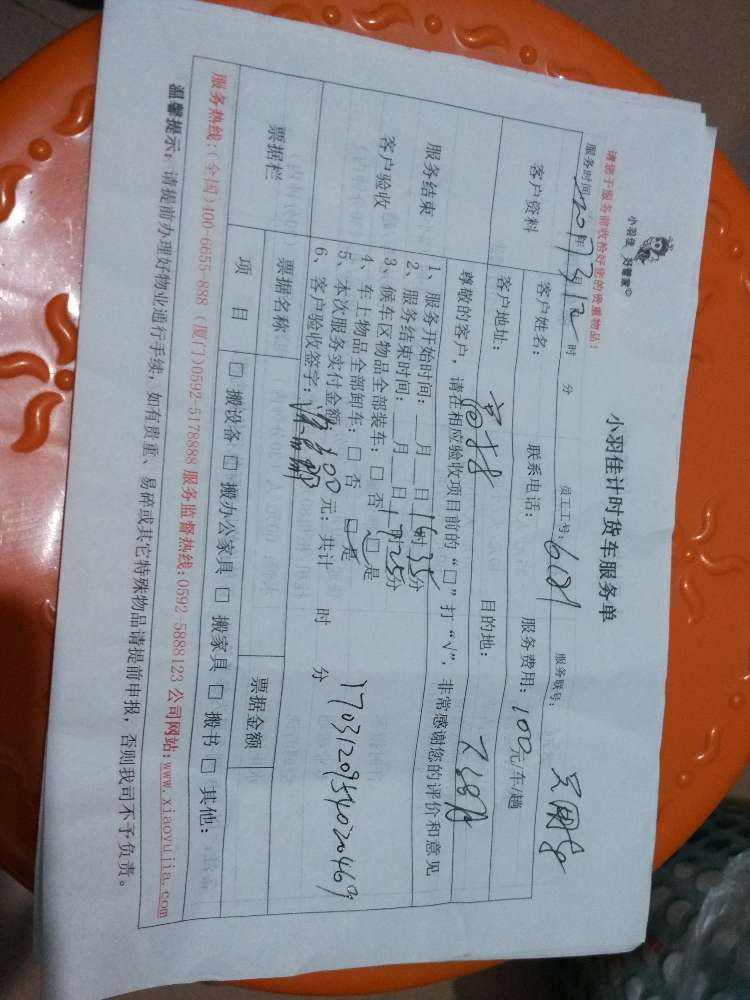 小羽佳 好管家
小羽佳计时货车服务单
请您于服务前收拾好您的贵重物品！
服务时间：2017年3月12 时 分 员工工号：6181 服务联号：
客户资料
客户姓名： 联系电话： 服务费用：100元/车/趟
客户地址： 目的地：
尊敬的客户，请在相应验收项目前的“□”打“√”，非常感谢您的评价和意见
服务结束
客户验收
1、服务开始时间：__月__日16时35分
2、服务结束时间：__月__日17时25分
3、候车区物品全部装车：□ 否 □ 是
4、车上物品全部卸车：□ 否 □ 是
5、本次服务实付金额 100元；共计 时 分
6、客户验收签字：
票据栏
票据名称 票据金额
项 目 □ 搬设备 □ 搬办公家具 □ 搬家具 □ 搬书 □ 其他：
服务热线：(全国)400-6655-888 (厦门)0592-5178888 服务监督热线：0592-5888123 公司网站：www.xiaoyujia.com
温馨提示：请提前办理好物业通行手续，如有贵重、易碎或其它特殊物品请提前申报，否则我司不予负责。